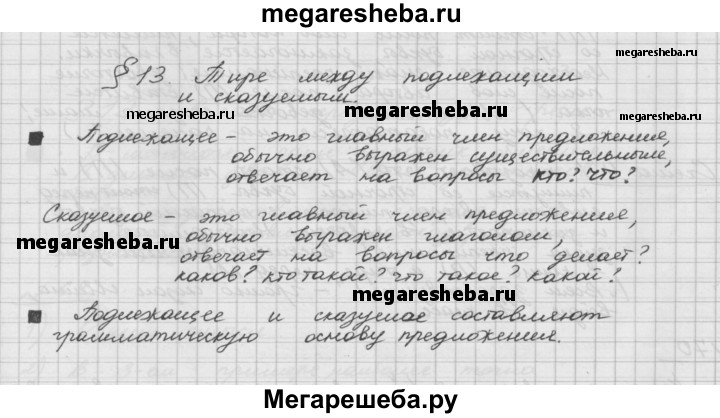 megaresheba.ru
megaresheba.ru
§ 13. Тире между подлежащим
и сказуемым.
megaresheba.ru
megaresheba.ru
Подлежащее – это главный член предложения,
обычно выражен существительным,
отвечает на вопросы кто? что?
megaresheba.ru
Сказуемое – это главный член предложения,
обычно выражен глаголом,
megaresheba.ru
отвечает на вопросы что делает?
каков? кто такой? что такое? какой?
megaresheba.ru
Подлежащее и сказуемое составляют
грамматическую основу предложения.
Мегарешеба.ру